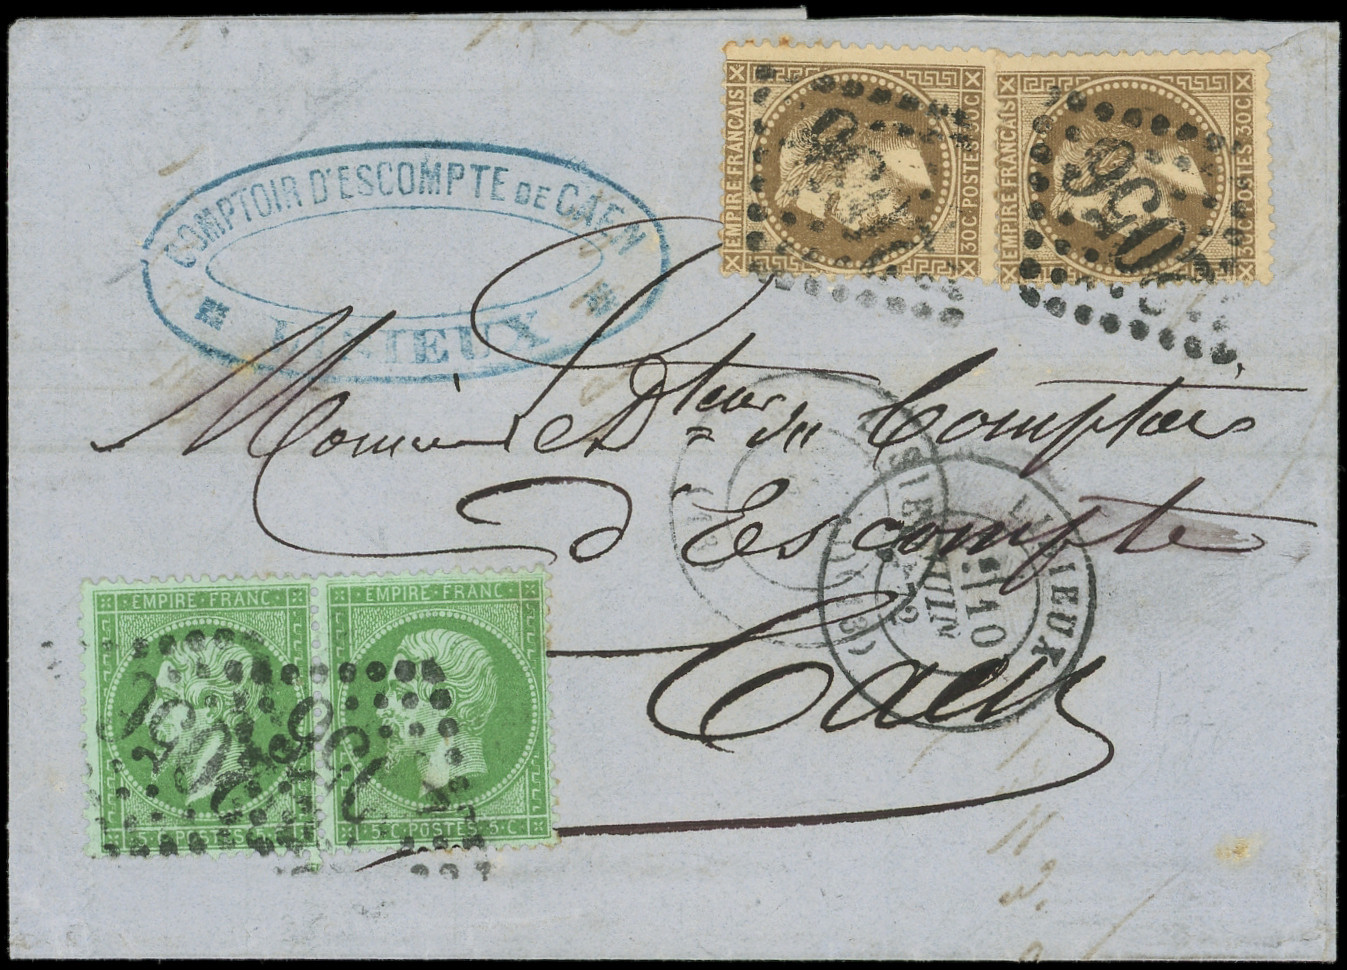 COMPTOIR D'ESCOMPTE DE CAEN
LISIEUX
EMPIRE FRANCAIS
30C POSTES 30C
EMPIRE FRANCAIS
30C POSTES 30C
2056
Monsieur le Dteur du Comptoir
d'Escompte
Caen
LISIEUX
(13)
10
JUIN
72
LISIEUX
(13)
EMPIRE FRANC
5 · C · POSTES · 5 · C
EMPIRE · FRANC ·
5 · C · POSTES · 5 · C ·
2056